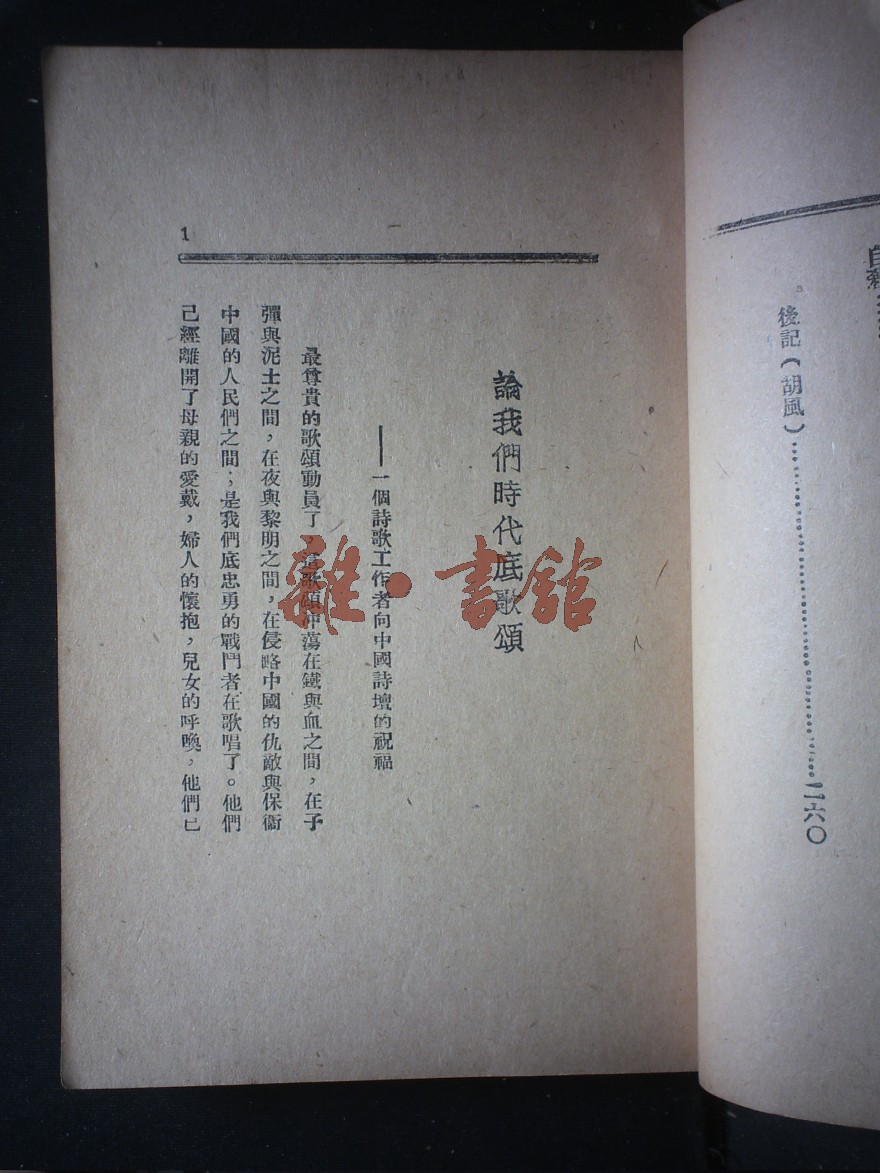 後記（胡風）……………………一六〇
1
論我們時代底歌頌
——一個詩歌工作者向中國詩壇的祝福
最尊貴的歌頌動員了。這歌頌冲蕩在鐵與血之間，在子
彈與泥土之間，在夜與黎明之間，在侵略中國的仇敵與保衞
中國的人民們之間；是我們底忠勇的戰鬥者在歌唱了。他們
已經離開了母親的愛戴，婦人的懷抱，兒女的呼喚，他們已
雜·書館